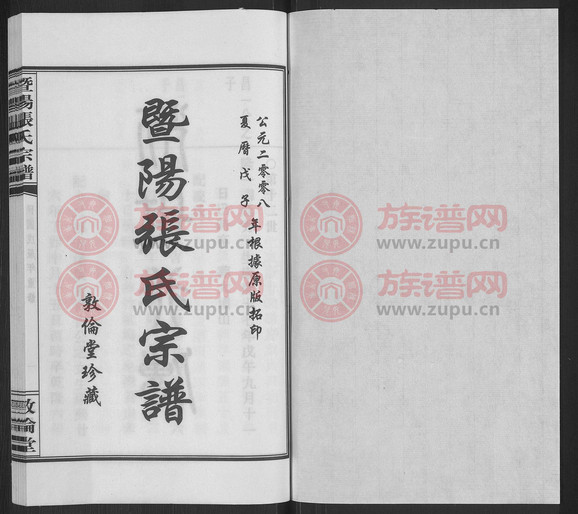 公元二零零八
夏曆戊子
年根據原版拓印
暨陽張氏宗譜
敦倫堂珍藏
暨陽張氏宗譜
敦倫堂
族谱网
www.zupu.cn
族谱网
www.zupu.cn
族谱网
www.zupu.cn
族谱网
www.zupu.cn